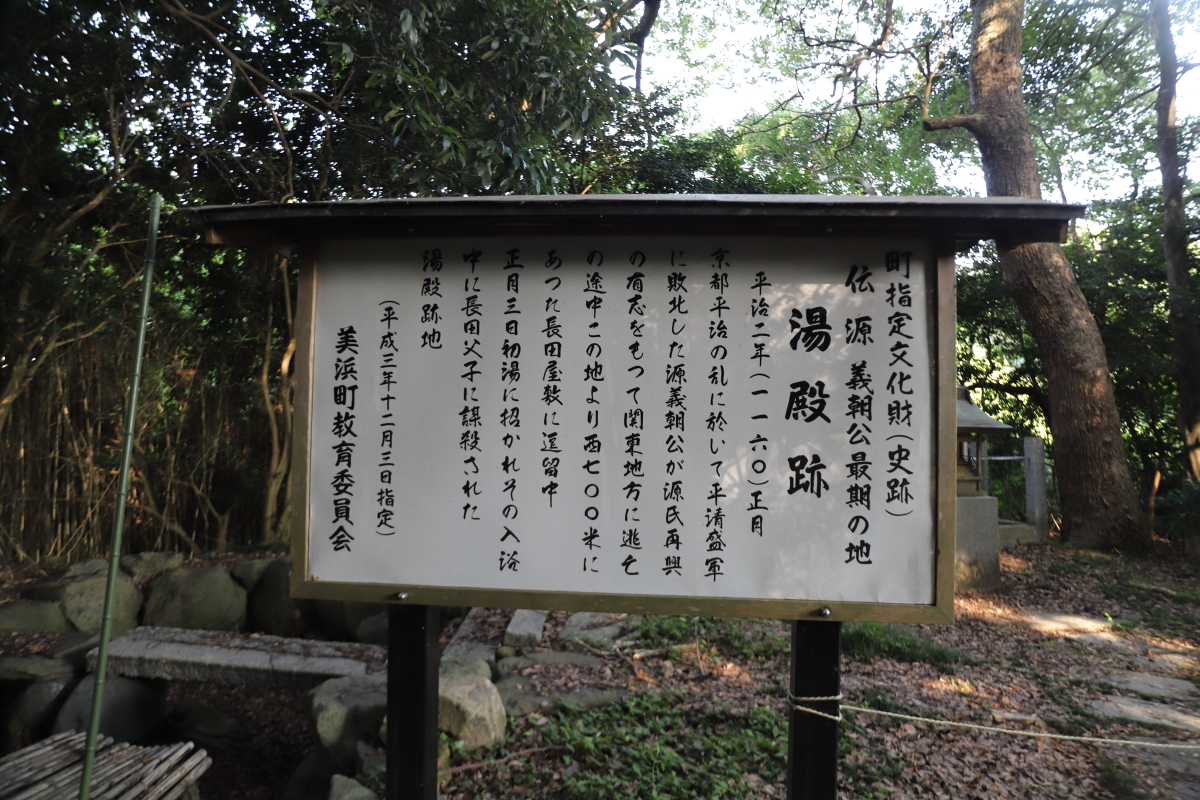 町指定文化財(史跡)
伝 源 義朝公最期の地
湯殿跡
平治二年(一一六〇)正月
京都平治の乱に於いて平清盛軍
に敗北した源義朝公が源氏再興
の有志をもつて関東地方に逃亡
の途中この地より西七〇〇米に
あつた長田屋敷に逗留中
正月三日初湯に招かれその入浴
中に長田父子に謀殺された
湯殿跡地
(平成三年十二月三日指定)
美浜町教育委員会